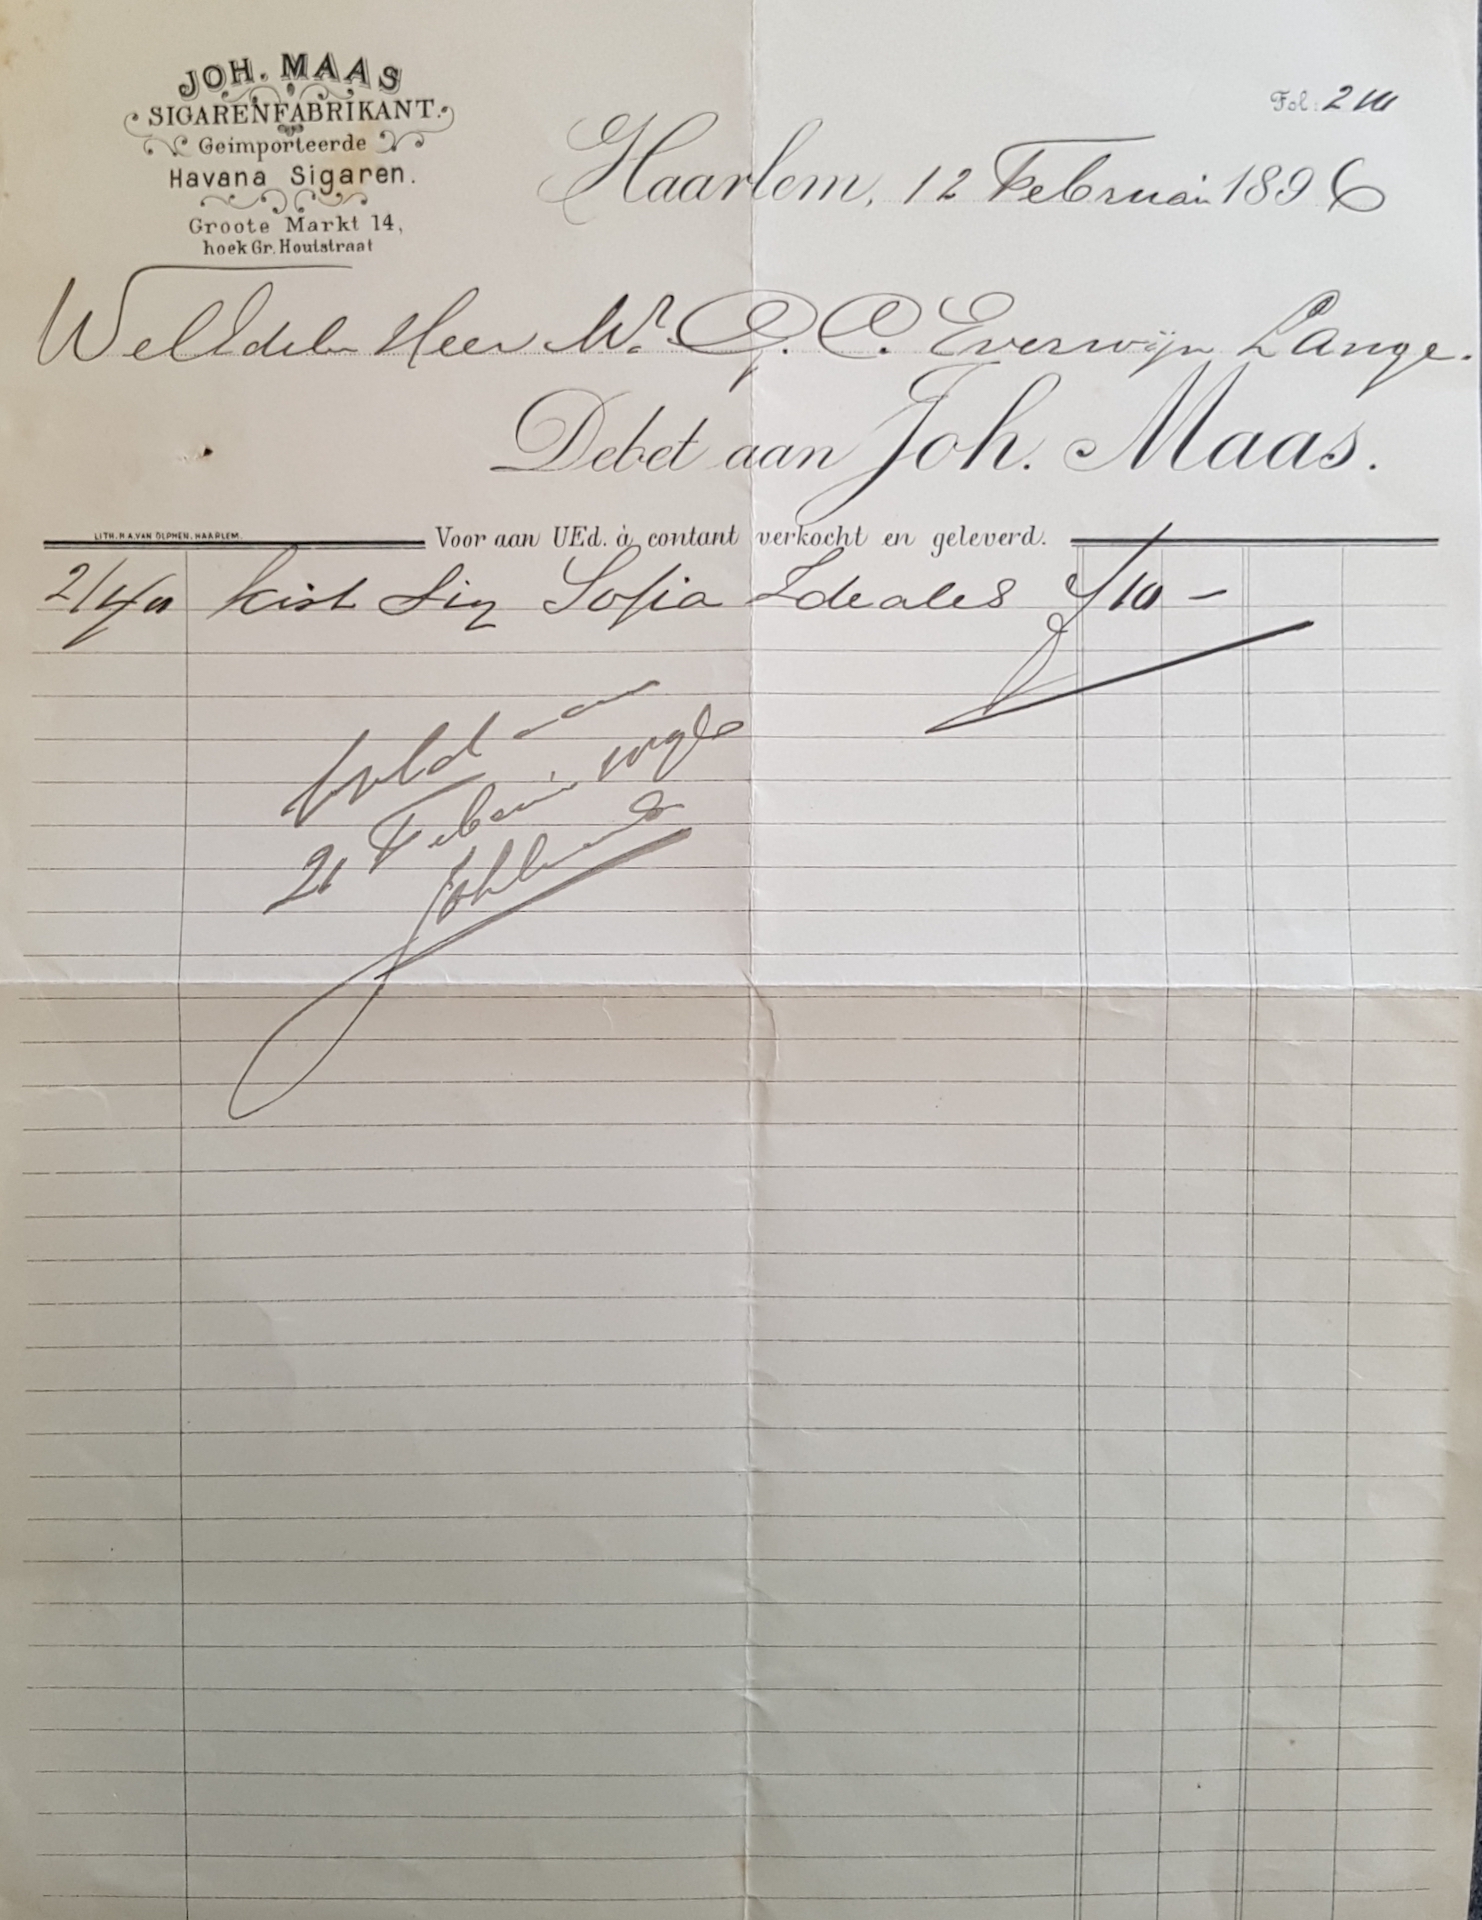 JOH. MAAS
SIGARENFABRIKANT.
Geimporteerde
Havana Sigaren.
Groote Markt 14,
hoek Gr. Houtstraat
Fol:
Haarlem, 12 Februari 1896
WelEdeln Heer Mr. G. C. Everwijn Lange.
Debet aan Joh. Maas.
LITH. H. A. VAN OLPHEN. HAARLEM.
Voor aan UEd. à contant verkocht en geleverd.
kist Sig Sofia Ideales ƒ 10 -
Voldaan
21 Februari
JohMaas